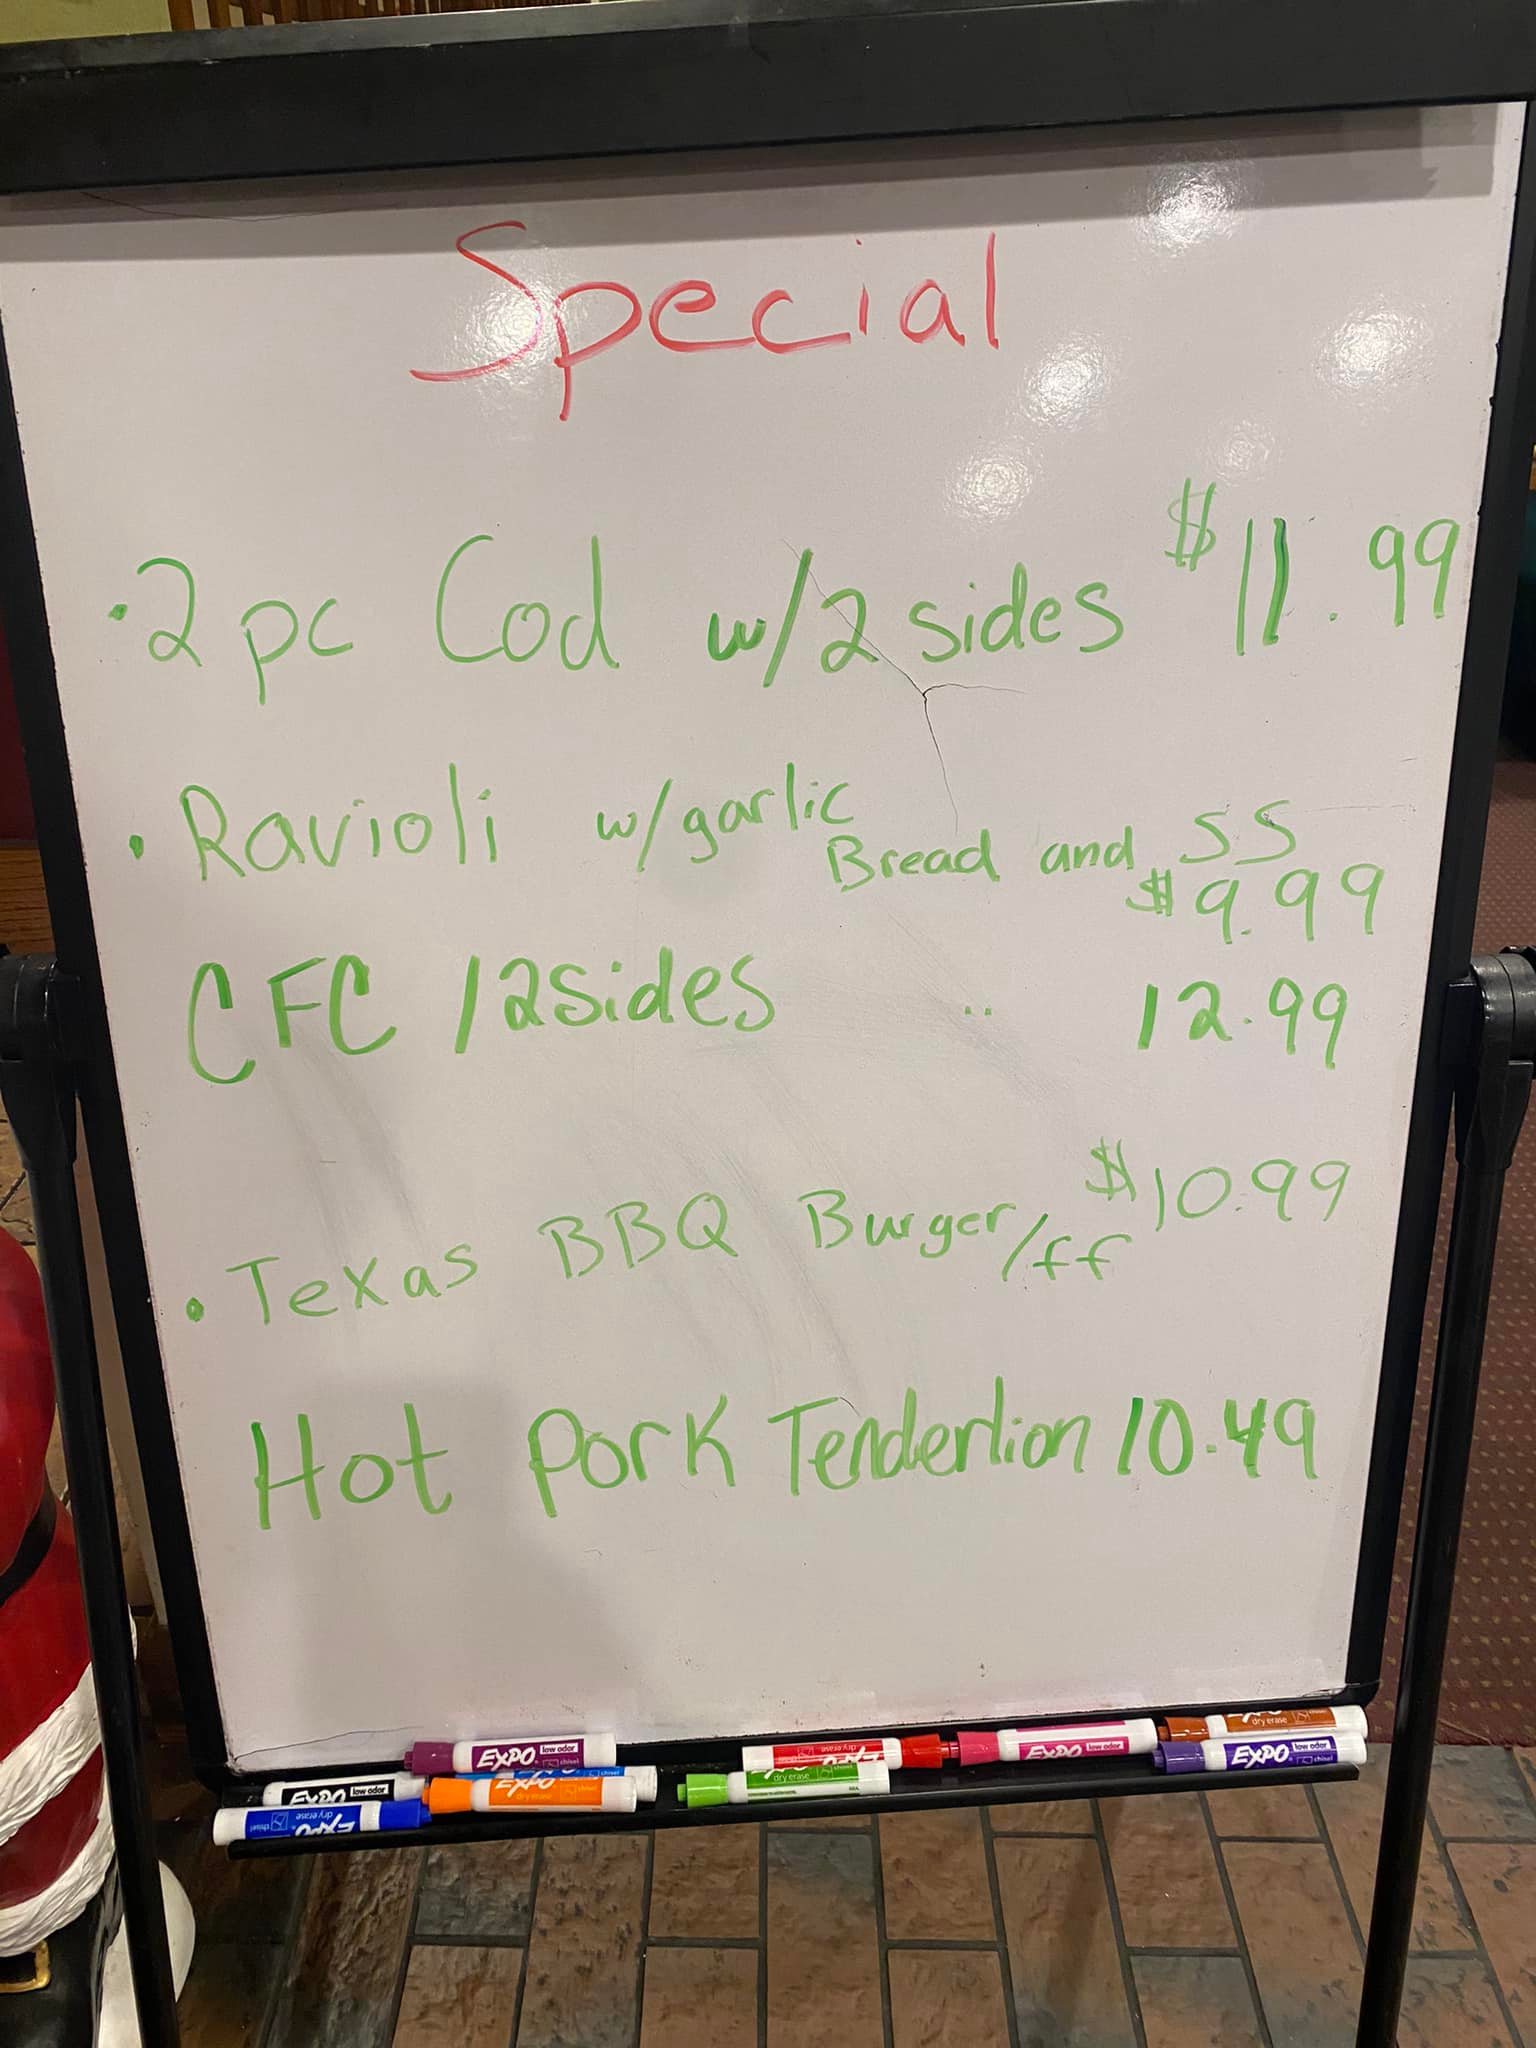 Special
• 2 pc Cod w/2 sides $11.99
• Ravioli w/garlic
Bread and SS
$9.99
CFC /2sides .. 12.99
• Texas BBQ Burger/ff $10.99
Hot Pork Tenderlion 10.49
EXPO low odor chisel
dry erase EXPO
EXPO low odor
dry erase chisel
EXPO low odor
EXPO dry erase
dry erase
EXPO low odor chisel
dry erase EXPO chisel